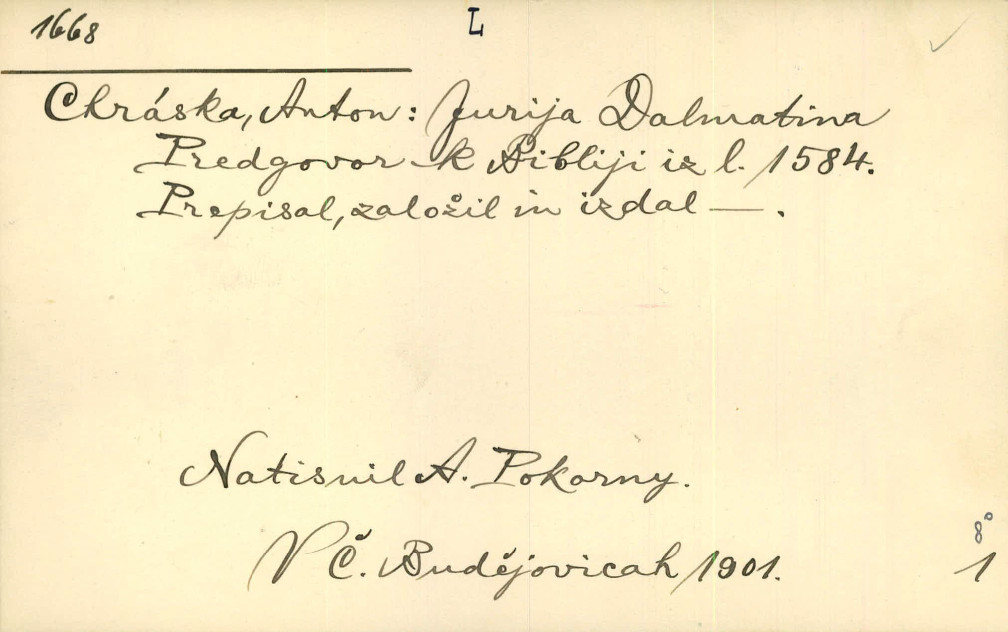 1668
L
Chráska, Anton: Jurija Dalmatina
Predgovor k Bibliji iz l. 1584.
Prepisal, založil in izdal —.
Natisnil A. Pokorny.
V Č. Budějovicah 1901.
8°
1